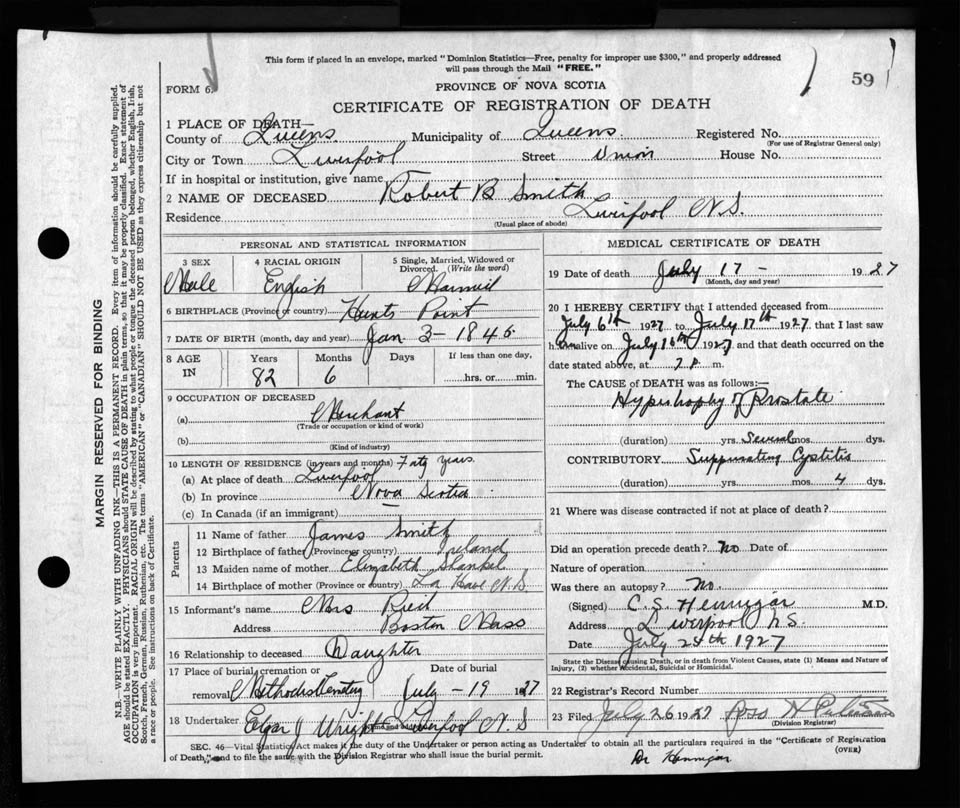 This form if placed in an envelope, marked "Dominion Statistics—Free, penalty for improper use $300," and properly addressed
will pass through the Mail "FREE."
59
FORM 6.
PROVINCE OF NOVA SCOTIA
CERTIFICATE OF REGISTRATION OF DEATH
1 PLACE OF DEATH—
County of Queens Municipality of Queens Registered No.
(For use of Registrar General only)
City or Town Liverpool Street Union House No.
If in hospital or institution, give name
2 NAME OF DECEASED Robert B Smith
Residence Liverpool N.S.
(Usual place of abode)
PERSONAL AND STATISTICAL INFORMATION
3 SEX Male
4 RACIAL ORIGIN English
5 Single, Married, Widowed or Divorced. (Write the word)
6 BIRTHPLACE (Province or country) Hunts Point
7 DATE OF BIRTH (month, day and year) Jan 3 - 1845
8 AGE IN Years 82 Months 6 Days If less than one day, hrs. or min.
9 OCCUPATION OF DECEASED
(a) Merchant
(Trade or occupation or kind of work)
(b)
(Kind of industry)
10 LENGTH OF RESIDENCE (in years and months) years
(a) At place of death Liverpool
(b) In province Nova Scotia
(c) In Canada (if an immigrant)
Parents
11 Name of father James Smith
12 Birthplace of father (Province or country) Ireland
13 Maiden name of mother Elizabeth
14 Birthplace of mother (Province or country) La Have N.S.
15 Informant's name Mrs
Address Boston Mass
16 Relationship to deceased Daughter
17 Place of burial, cremation or removal Date of burial July - 19 1927
18 Undertaker Edgar J Wright Liverpool N S
MEDICAL CERTIFICATE OF DEATH
19 Date of death July 17 - 1927
(Month, day and year)
20 I HEREBY CERTIFY that I attended deceased from
July 6th 1927 to July 17th 1927, that I last saw
him alive on July 16th 1927, and that death occurred on the
date stated above, at 7 p. m.
The CAUSE OF DEATH was as follows:—
Hypertrophy of Prostate
(duration) yrs. Several mos. dys.
CONTRIBUTORY Suppurating Cystitis
(duration) yrs. mos. 4 dys.
21 Where was disease contracted if not at place of death?
Did an operation precede death? No Date of
Nature of operation
Was there an autopsy? No.
(Signed) C. S. Hennigar M.D.
Address Liverpool N.S.
Date July 25th 1927
State the Disease causing Death, or in death from Violent Causes, state (1) Means and Nature of
Injury, (2) whether Accidental, Suicidal or Homicidal.
22 Registrar's Record Number
23 Filed July 26 1927 Ross
(Division Registrar)
SEC. 46—Vital Statistics Act makes it the duty of the Undertaker or person acting as Undertaker to obtain all the particulars required in the "Certificate of Registration
of Death," and to file the same with the Division Registrar who shall issue the burial permit. (OVER)
Dr Hennigar
MARGIN RESERVED FOR BINDING
N.B.—WRITE PLAINLY WITH UNFADING INK—THIS IS A PERMANENT RECORD. Every item of information should be carefully supplied.
AGE should be stated EXACTLY. PHYSICIANS should STATE CAUSE OF DEATH in plain terms, so that it may be properly classified. Exact statement of
OCCUPATION is very important. RACIAL ORIGIN will be described by stating to what people or tongue the deceased person belonged, whether English, Irish,
Scotch, French, German, Russian, Ruthenian, etc. The terms "AMERICAN" or "CANADIAN" SHOULD NOT BE USED as they express citizenship but not
a race or people. See instructions on back of Certificate.